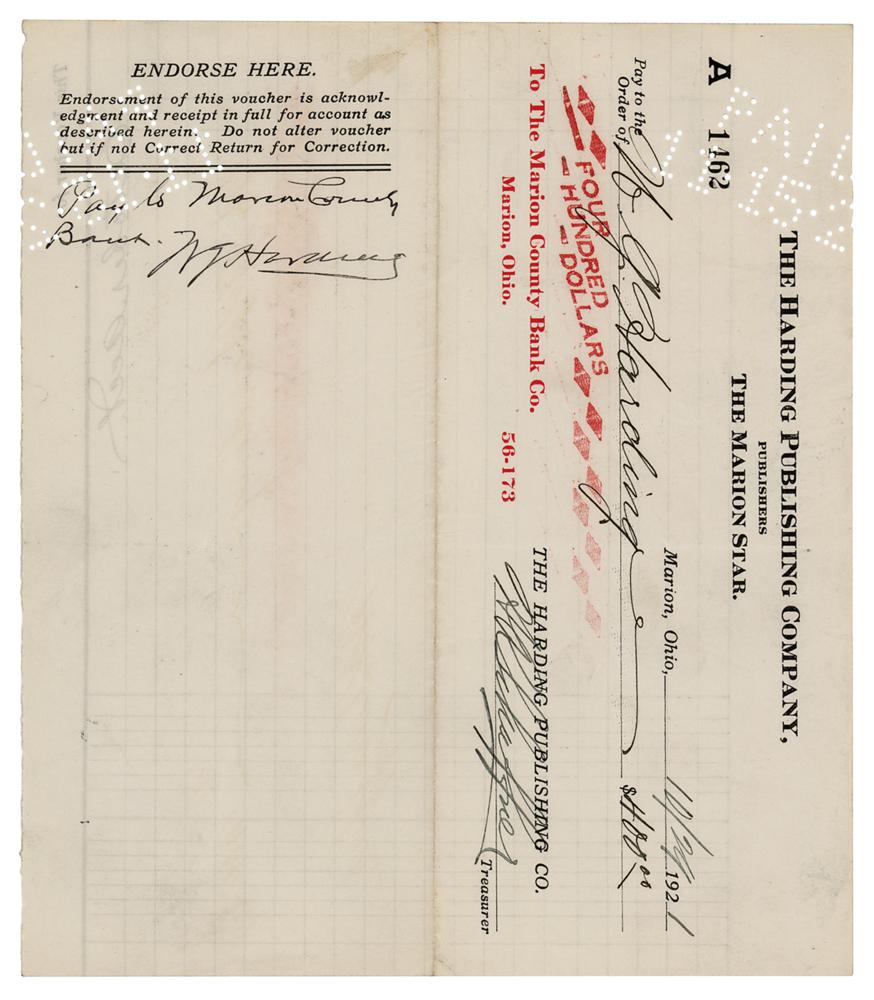 ENDORSE HERE.
Endorsement of this voucher is acknowl-
edgment and receipt in full for account as
described herein. Do not alter voucher
but if not Correct Return for Correction.
Pay to Marion County
Bank.
WG Harding
A 1462
THE HARDING PUBLISHING COMPANY,
PUBLISHERS
THE MARION STAR.
Marion, Ohio, 192 1
Pay to the
Order of W. G. Harding $400 00
FOUR
HUNDRED
DOLLARS
To The Marion County Bank Co. 56-173
Marion, Ohio.
THE HARDING PUBLISHING CO.
Treasurer